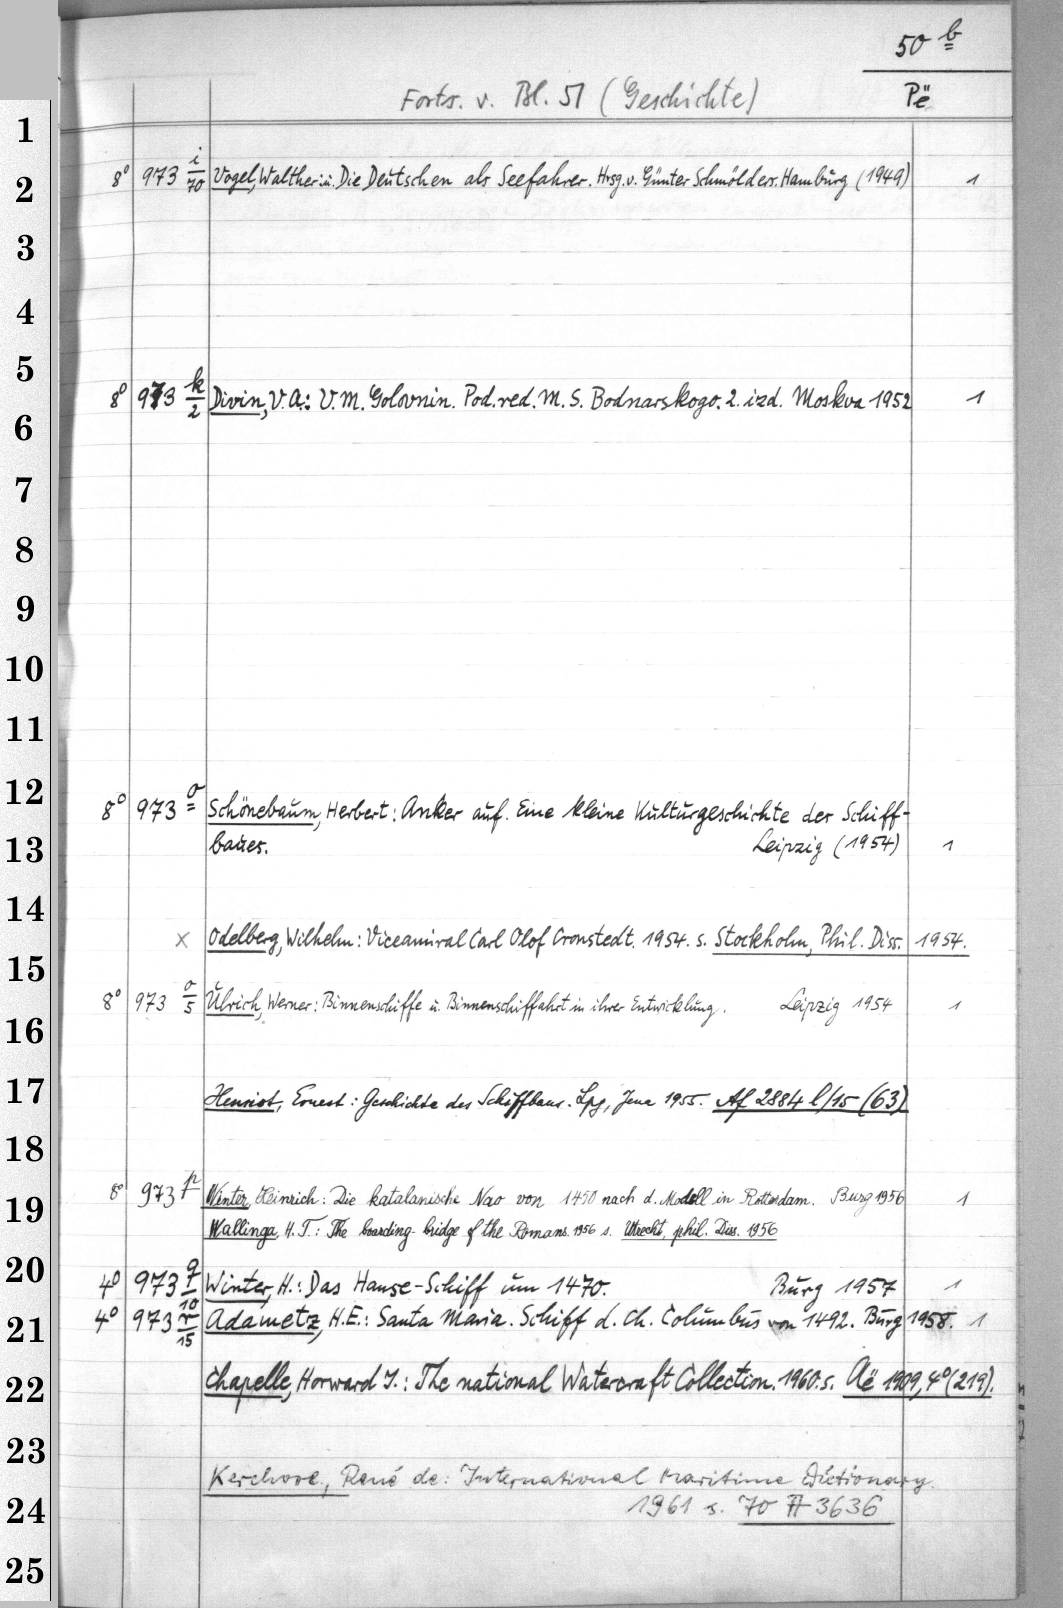 50 b
Forts. v. Bl. 51 (Geschichte) Pë
1
2 8° 973 i/70 Vogel, Walther u. Die Deutschen als Seefahrer. Hrsg. v. Günter Schmölders. Hamburg (1949) 1
3
4
5
8° 973 k/2 Divin, V. A.: V. M. Golovnin. Pod. red. M. S. Bodnarskogo. 2. izd. Moskva 1952 1
6
7
8
9
10
11
12 8° 973 o Schönebaum, Herbert: Anker auf. Eine kleine Kulturgeschichte der Schiff-
13 bauer. Leipzig (1954) 1
14
x Odelberg, Wilhelm: Viceamiral Carl Olof Cronstedt. 1954. s. Stockholm, Phil. Diss. 1954.
15
8° 973 o/5 Ulrich, Werner: Binnenschiffe u. Binnenschiffahrt in ihrer Entwicklung. Leipzig 1954 1
16
17 Henriot, Ernest: Geschichte des Schiffbaus. Lpg, Jena 1955. Af 2884 l/15 (63)
18
8° 973 p Winter, Heinrich: Die katalanische Nao von 1450 nach d. Modell in Rotterdam. Burg 1956 1
19 Wallinga, H. T.: The boarding-bridge of the Romans. 1956 s. Utrecht, phil. Diss. 1956
20 4° 973 q/10 Winter, H.: Das Hanse-Schiff um 1470. Burg 1957 1
21 4° 973 r/15 Adametz, H.E.: Santa Maria. Schiff d. Ch. Columbus von 1492. Burg 1958. 1
22 Chapelle, Horward I.: The national Watercraft Collection. 1960. s. Aë 1909, 4° (219).
23
Kerchove, René de: International Maritime Dictionary.
24 1961 s. 70 A 3636
25